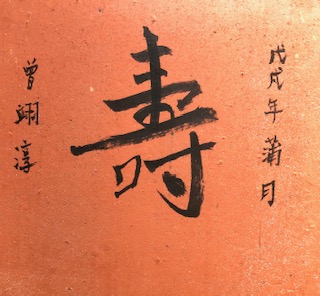 戊戌年蒲月
壽
曾翊淳